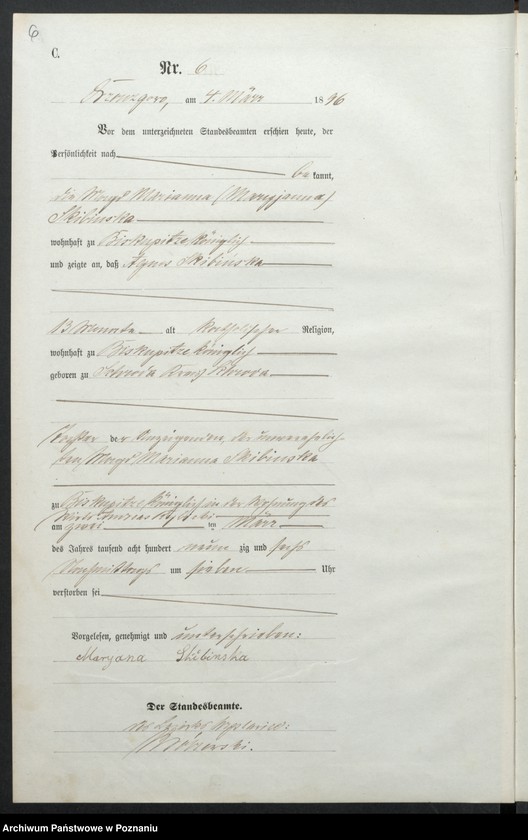 6
C.
Nr. 6
am 4. März 1896
Vor dem unterzeichneten Standesbeamten erschien heute, der
Persönlichkeit nach
bekannt,
die Magd Marianna (Maryjanna)
Skibinska
wohnhaft zu Biskupitze, königlich
und zeigte an, daß Agnes Skibinska
13 Monate alt katholischer Religion,
wohnhaft zu Biskupitze, königlich
geboren zu Schroda Kreis Schroda
Tochter der Anzeigenden, der unverehelich-
ten Magd Marianna Skibinska
zu Biskupitze, königlich in der Wohnung des
Wirts Andreas
am zwei ten März
des Jahres tausend acht hundert neun zig und sechs
Nachmittags um sieben Uhr
verstorben sei
Vorgelesen, genehmigt und unterschrieben:
Maryana Skibinska
Der Standesbeamte.
des Bezirks
Archiwum Państwowe w Poznaniu